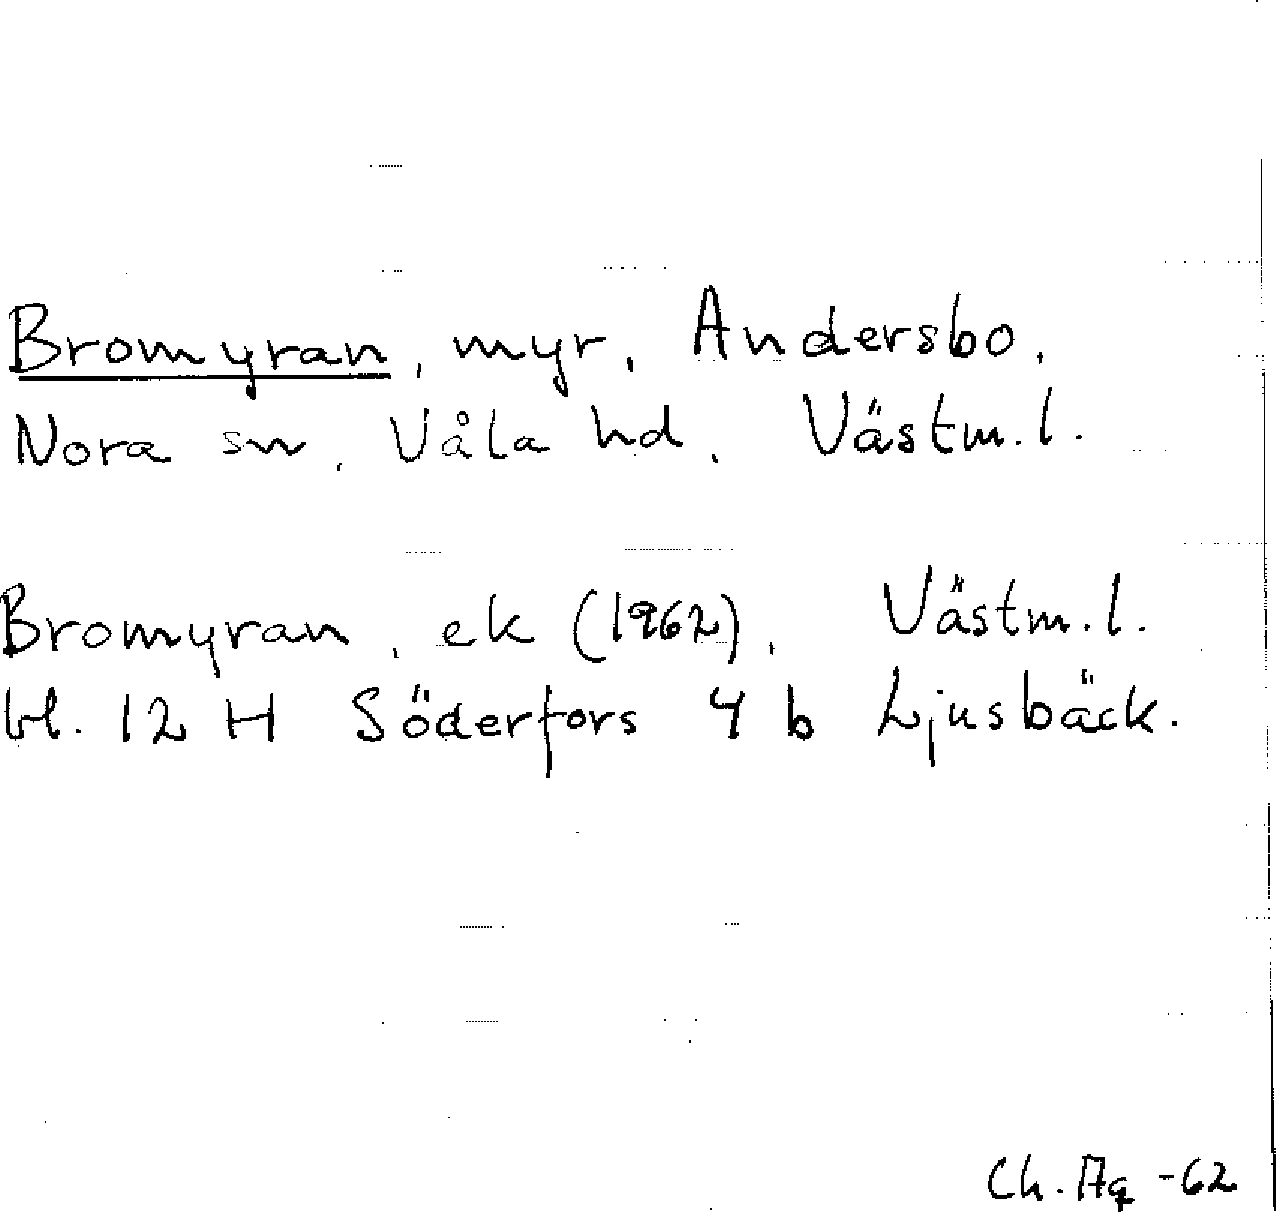 Bromyran, myr, Andersbo,
Nora sn, Våla hd, Västm. l.
Bromyran, ek (1962), Västm. l.
bl. 12 H Söderfors 4 b Ljusbäck.
Ch. Ag -62